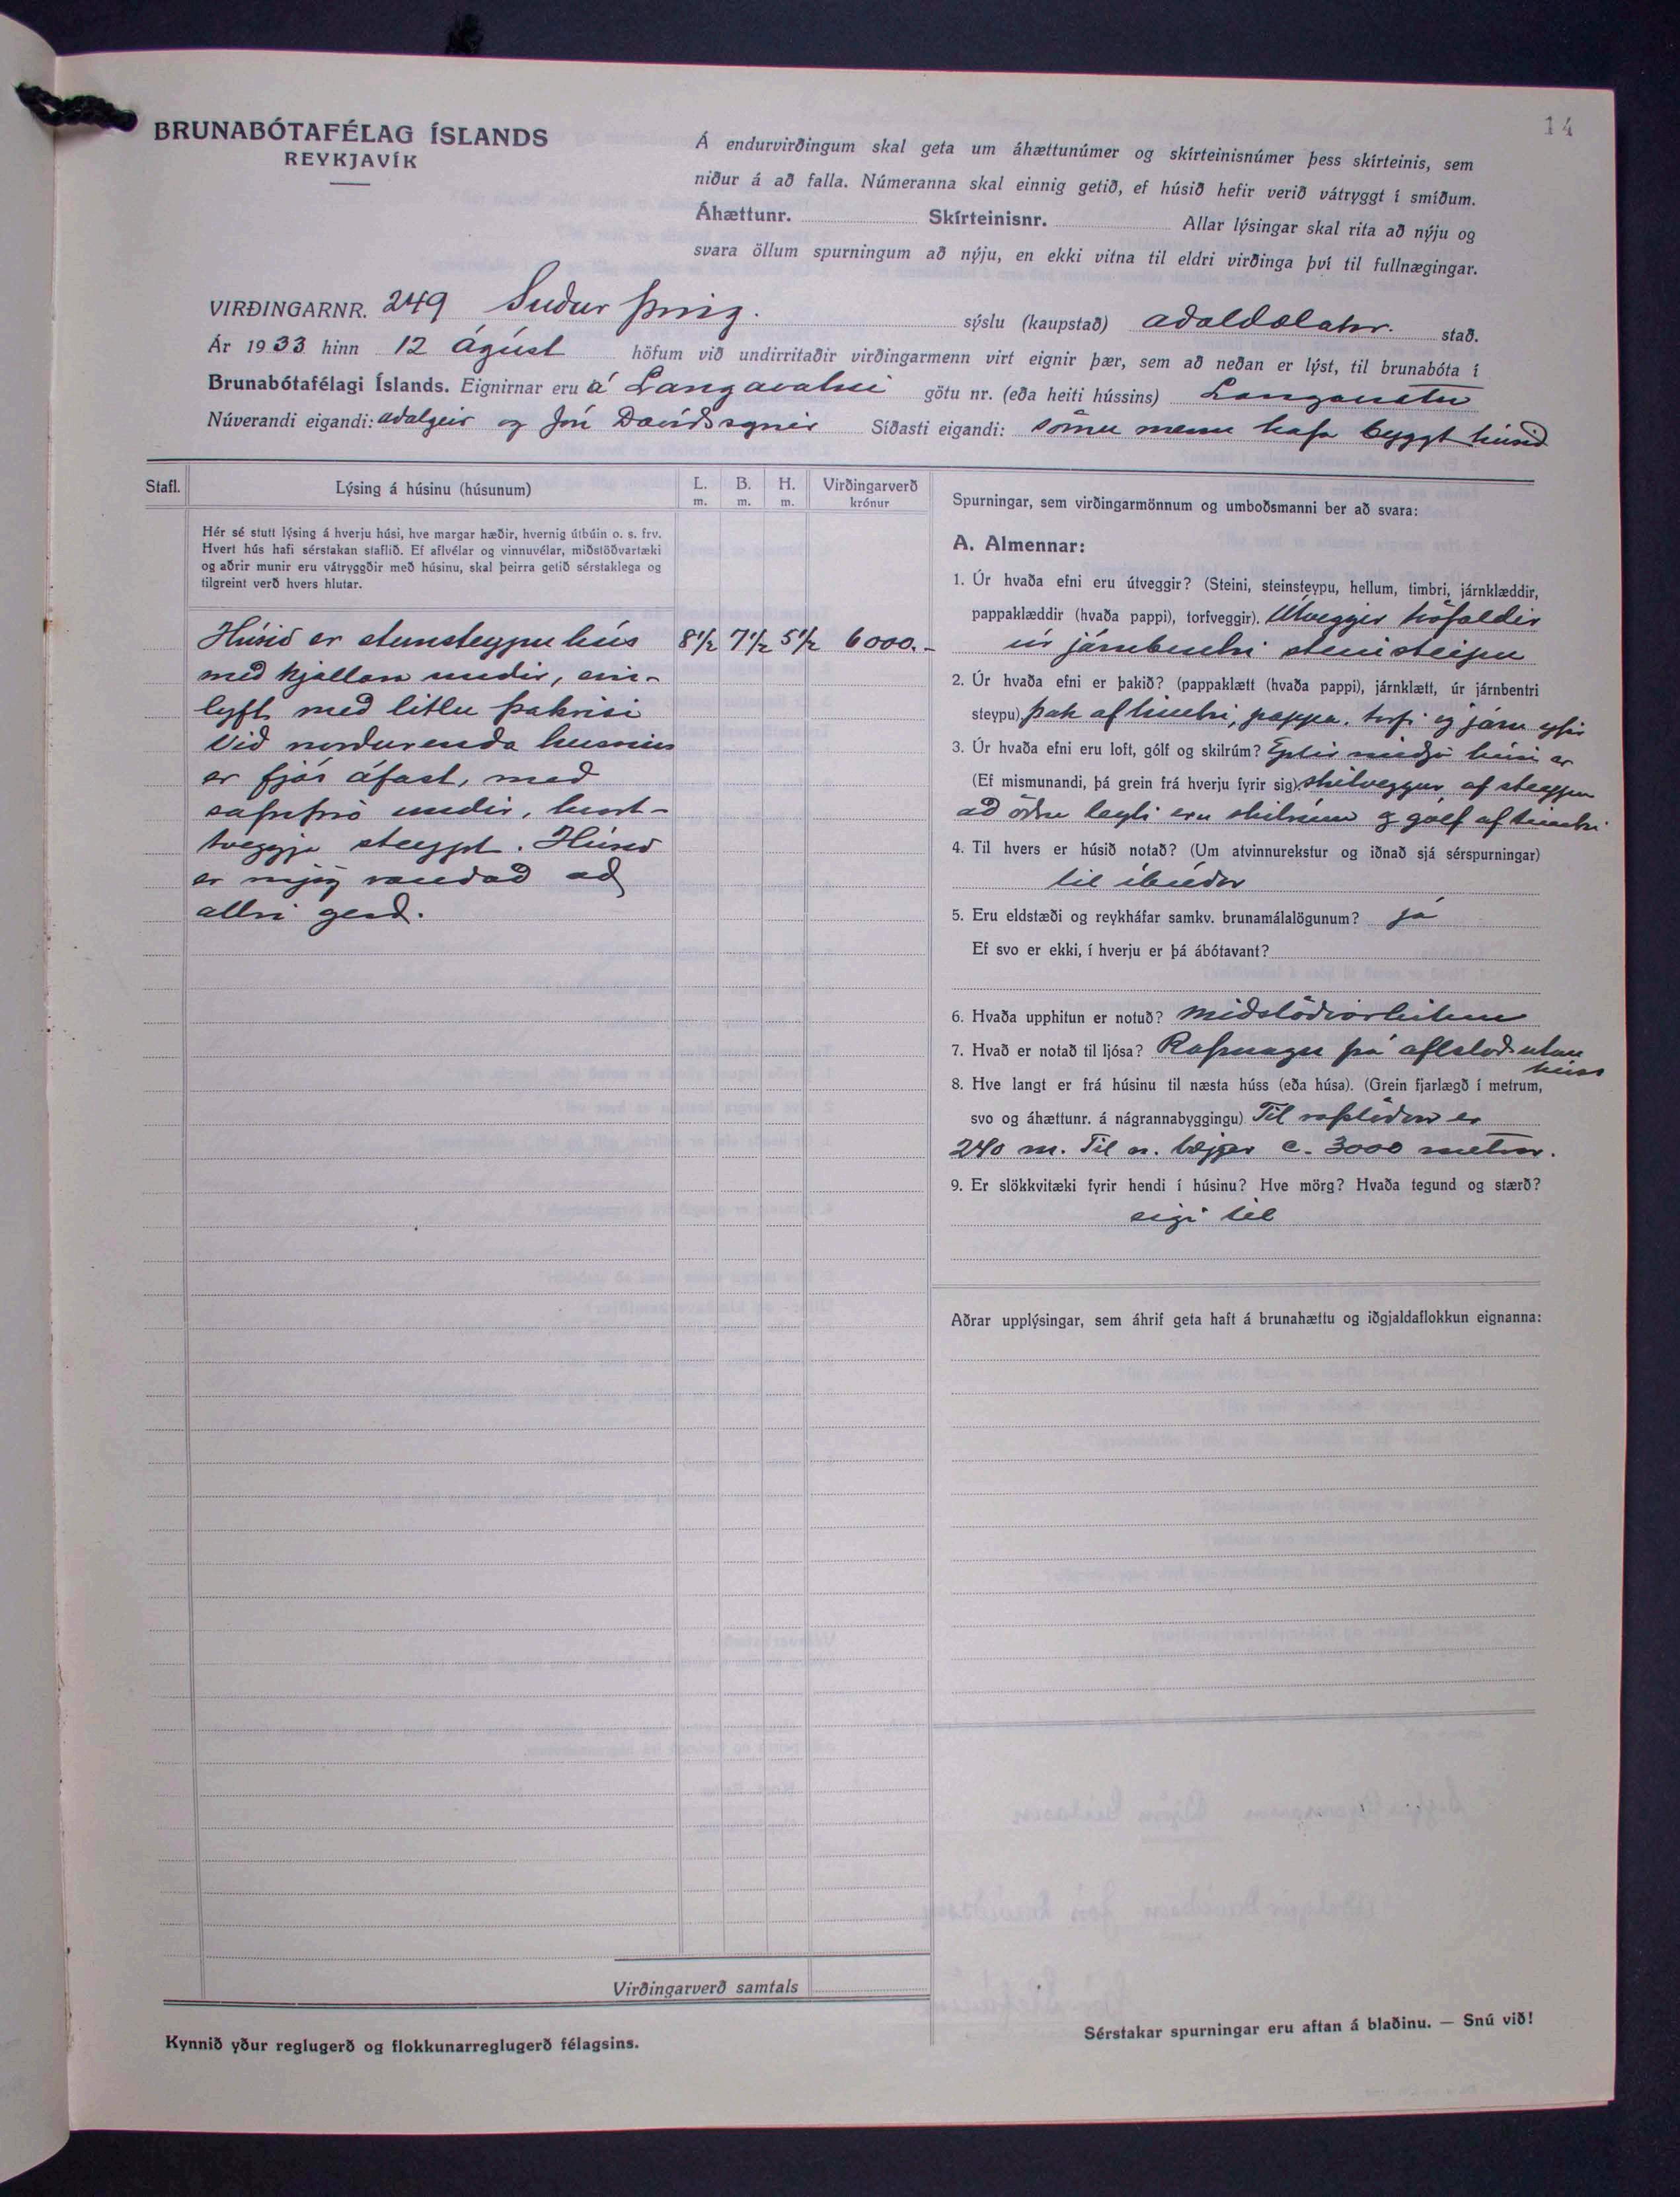 14
BRUNABÓTAFÉLAG ÍSLANDS
REYKJAVÍK
Á endurvirðingum skal geta um áhættunúmer og skírteinisnúmer þess skírteinis, sem
niður á að falla. Númeranna skal einnig getið, ef húsið hefir verið vátryggt í smíðum.
Áhættunr. Skírteinisnr. Allar lýsingar skal rita að nýju og
svara öllum spurningum að nýju, en ekki vitna til eldri virðinga því til fullnægingar.
VIRÐINGARNR. 249 Suður þing. sýslu (kaupstað) aðaldælahr. stað.
Ár 1933 hinn 12 ágúst höfum við undirritaðir virðingarmenn virt eignir þær, sem að neðan er lýst, til brunabóta í
Brunabótafélagi Íslands. Eignirnar eru á Langavatni götu nr. (eða heiti hússins)
Núverandi eigandi: aðalgeir og Jón Davíðssynir Síðasti eigandi: sömu menn hafa byggt húsið
Stafl. Lýsing á húsinu (húsunum) L. m. B. m. H. m. Virðingarverð krónur
Hér sé stutt lýsing á hverju húsi, hve margar hæðir, hvernig útbúin o. s. frv.
Hvert hús hafi sérstakan staflið. Ef aflvélar og vinnuvélar, miðstöðvartæki
og aðrir munir eru vátryggðir með húsinu, skal þeirra getið sérstaklega og
tilgreint verð hvers hlutar.
Húsið er steinsteypuhús 8 1/2 7 1/2 5 1/2 6000.-
með kjallara undir, ein-
lyft með litlu þakrisi
Við norðurenda hússins
er fjós áfast, með
safnþró undir, hvort-
tveggja steypt. Húsið
er mjög vandað að
allri gerð.
Virðingarverð samtals
Kynnið yður reglugerð og flokkunarreglugerð félagsins.
Spurningar, sem virðingarmönnum og umboðsmanni ber að svara:
A. Almennar:
1. Úr hvaða efni eru útveggir? (Steini, steinsteypu, hellum, timbri, járnklæddir,
pappaklæddir (hvaða pappi), torfveggir). Útveggir tvöfaldir
úr járnbentri steinsteipu
2. Úr hvaða efni er þakið? (pappaklætt (hvaða pappi), járnklætt, úr járnbentri
steypu) þak af timbri, pappa, torfi og járn yfir
3. Úr hvaða efni eru loft, gólf og skilrúm? Eptir miðju húsi er
(Ef mismunandi, þá grein frá hverju fyrir sig) skilveggur af steypu
að öðru leyti eru skilrúm og gólf af timbri
4. Til hvers er húsið notað? (Um atvinnurekstur og iðnað sjá sérspurningar)
til íbúðar
5. Eru eldstæði og reykháfar samkv. brunamálalögunum? já
Ef svo er ekki, í hverju er þá ábótavant?
6. Hvaða upphitun er notuð? miðstöðvarhitun
7. Hvað er notað til ljósa? Rafmagn frá aflstöð utan
húss
8. Hve langt er frá húsinu til næsta húss (eða húsa). (Grein fjarlægð í metrum,
svo og áhættunr. á nágrannabyggingu) Til rafstöðvar er
240 m. Til n. bæjar c. 3000 metrar.
9. Er slökkvitæki fyrir hendi í húsinu? Hve mörg? Hvaða tegund og stærð?
eigi til
Aðrar upplýsingar, sem áhrif geta haft á brunahættu og iðgjaldaflokkun eignanna:
Sérstakar spurningar eru aftan á blaðinu. — Snú við!